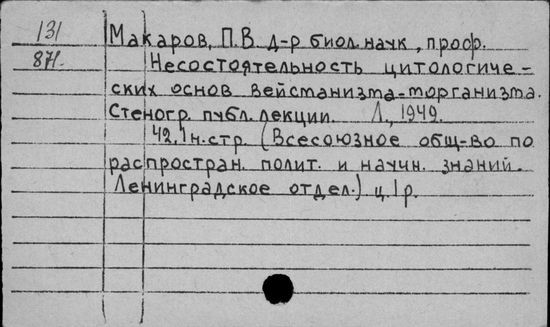 131 Макаров, П.В. д-р биол. наук, проф.
871. Несостоятельность цитологиче-
ских основ вейсманизма-морганизма.
Стеногр. публ. лекции. Л., 1949.
42, 1 н. стр. (Всесоюзное общ-во по
распростран. полит. и научн. знаний.
Ленинградское отдел.) ц. 1 р.